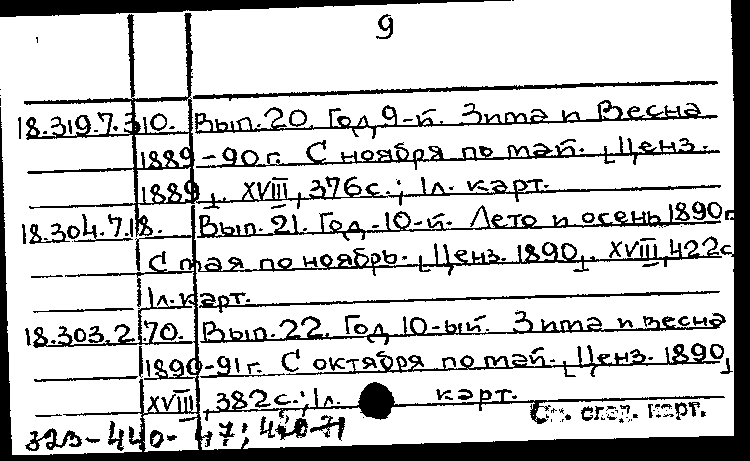 9
18.319.7.310. Вып. 20. Год 9-й. Зима и Весна
1889-90 г. С ноября по май. [Ценз.
1889]. XVIII, 376 с.; 1л. карт.
18.304.7.18. Вып. 21. Год. 10-й. Лето и осень 1890г.
С мая по ноябрь. [Ценз. 1890]. XVIII, 422с
1л. карт.
18.303.2.70. Вып. 22. Год 10-ый. Зима и весна
1890-91 г. С октября по май. [Ценз. 1890]
XVIII, 382 с.; 1л. карт.
См. след. карт.